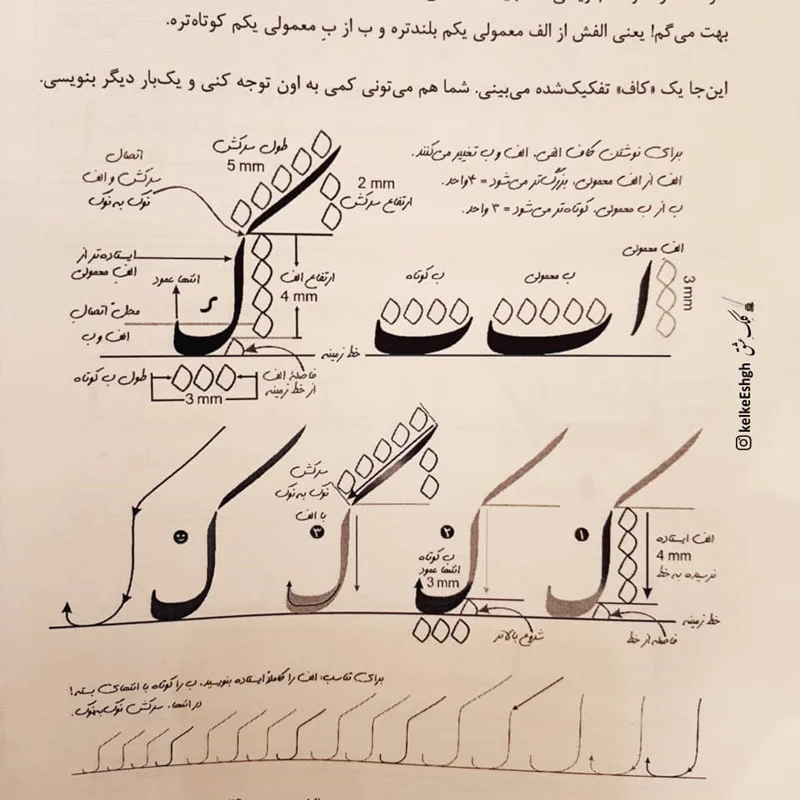 بهت می‌گم! یعنی الفش از الف معمولی یکم بلندتره و ب از بِ معمولی یکم کوتاه‌تره.
این‌جا یک «کاف» تفکیک‌شده می‌بینی. شما هم می‌تونی کمی به اون توجه کنی و یک‌بار دیگر بنویسی.
برای نوشتن کاف الفی، الف و ب تغییر می‌کنند.
الف از الف معمولی، بزرگ‌تر می‌شود = ۴ واحد.
ب از ب معمولی، کوتاه‌تر می‌شود = ۳ واحد.
طول سرکش
5 mm
2 mm
ارتفاع سرکش
اتصال
سرکش و الف
نوک به نوک
ایستاده‌تر از
الف معمولی
انتها عمود
محل اتصال
الف و ب
ارتفاع الف
4 mm
ب کوتاه
ب معمولی
الف معمولی
3 mm
خط زمینه
طول ب کوتاه
3 mm
فاصلهٔ الف
از خط زمینه
کلک عشق
kelkeEshgh
الف ایستاده
4 mm
نرسیده به خط
۱
فاصله از خط
خط زمینه
۲
ب کوتاه
انتها عمود
3 mm
شروع بالاتر
۳
سرکش
نوک به نوک
با الف
برای تناسب، الف را کاملاً ایستاده بنویسید. ب را کوتاه با انتهای بسته!
در انتها، سرکش نوک‌به‌نوک.